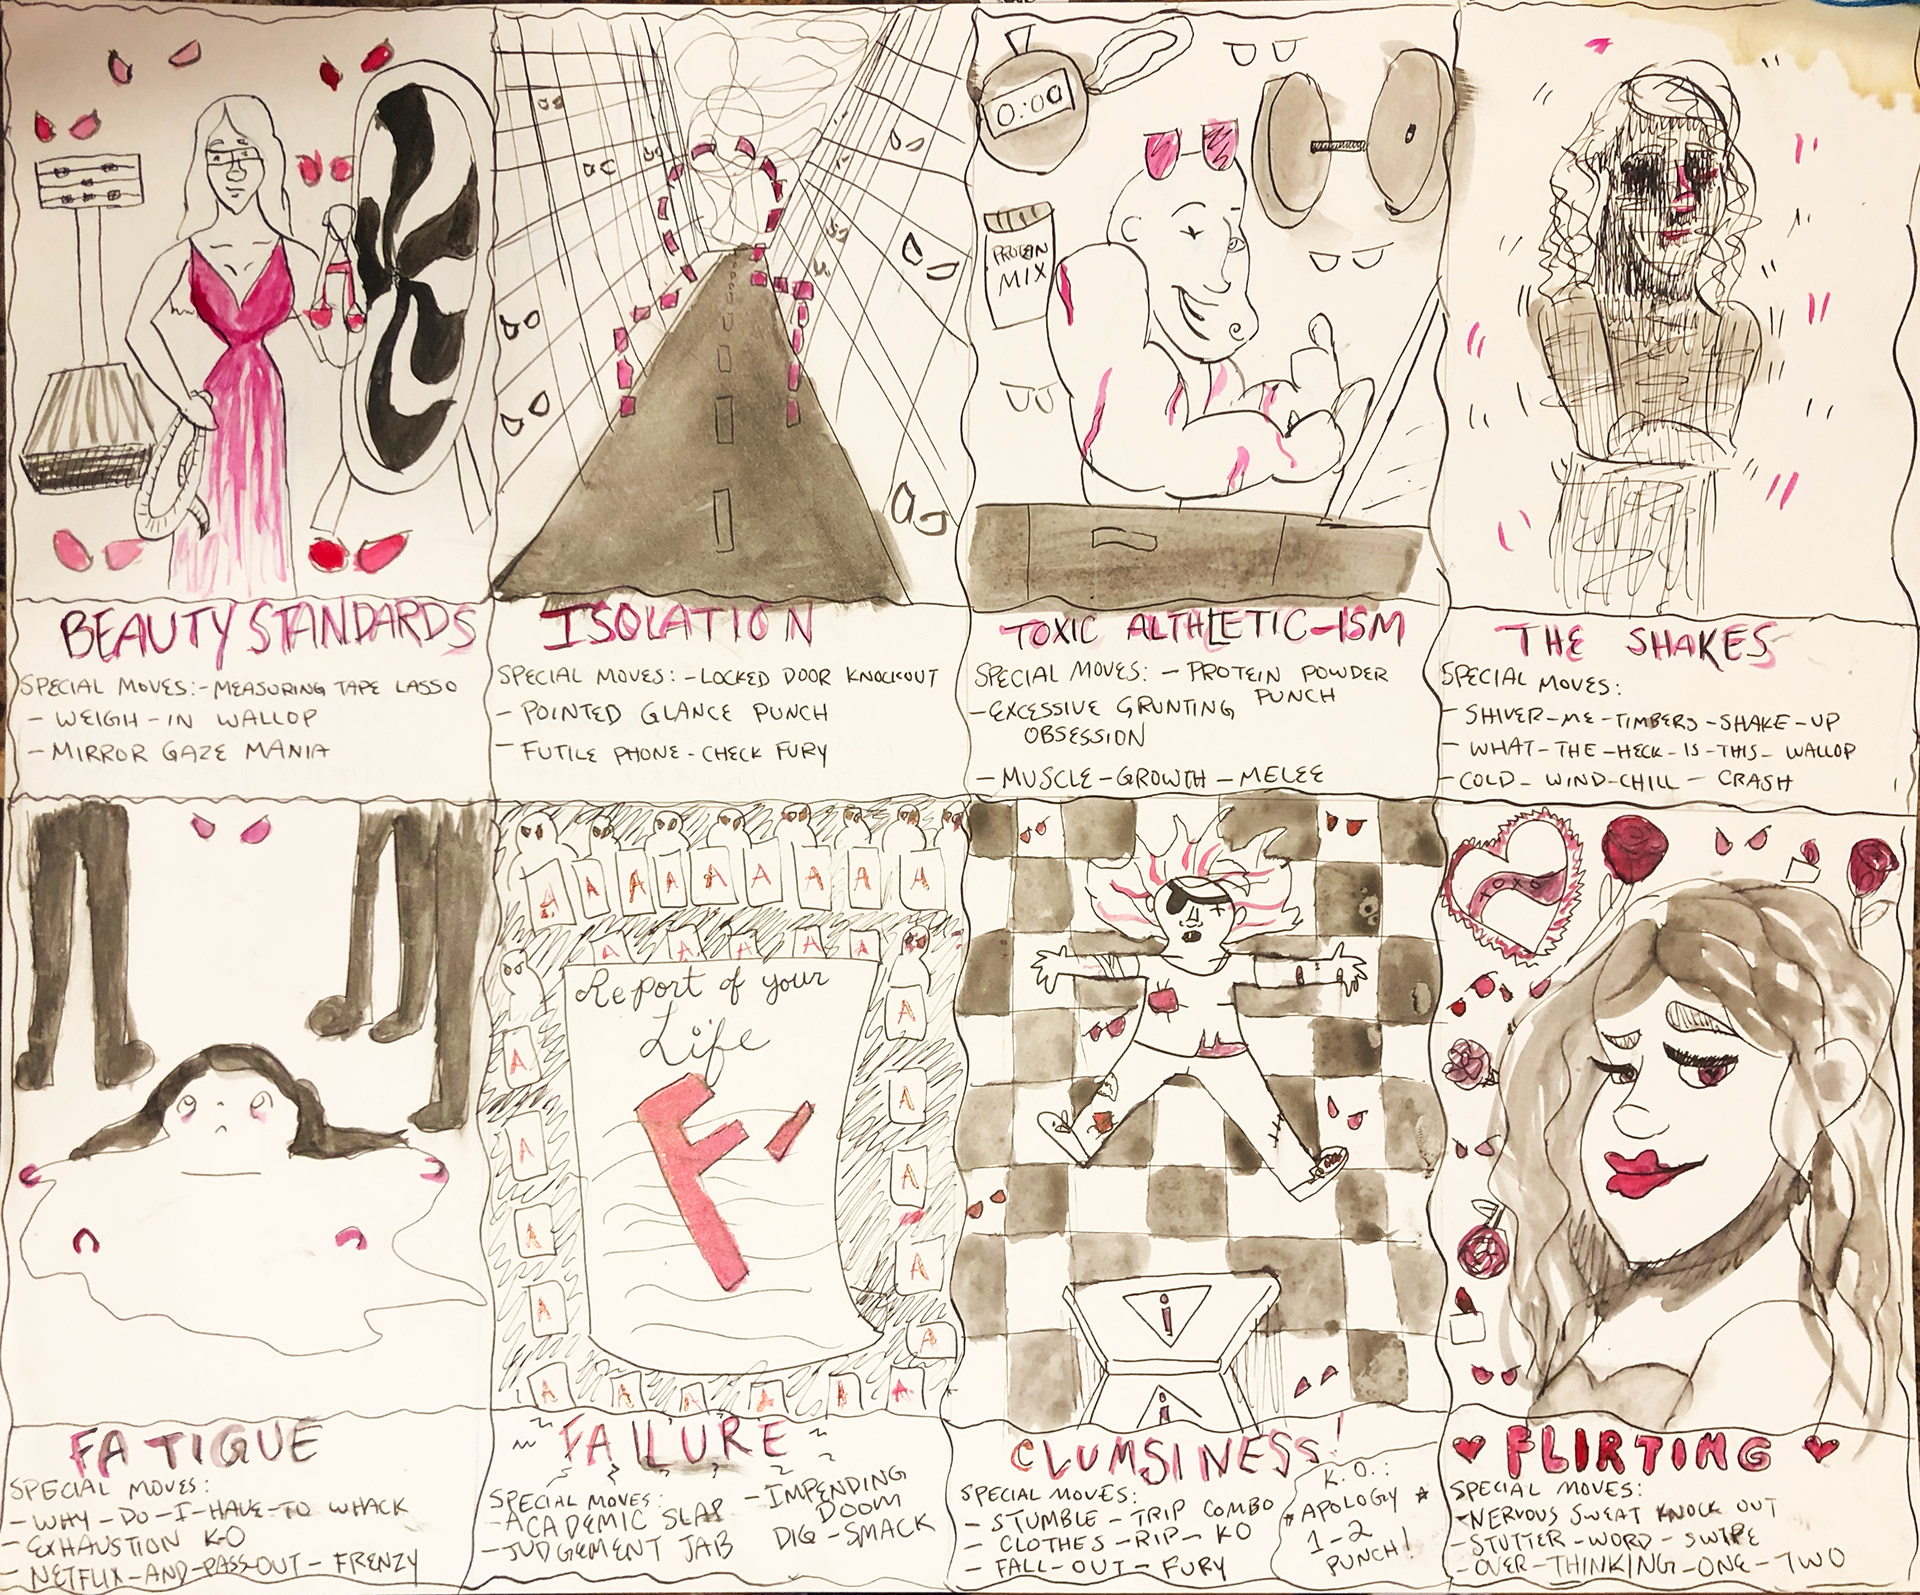 0:00
PROTEIN
MIX
BEAUTY STANDARDS
SPECIAL MOVES:-MEASURING TAPE LASSO
- WEIGH-IN WALLOP
- MIRROR GAZE MANIA
ISOLATION
SPECIAL MOVES:-LOCKED DOOR KNOCKOUT
- POINTED GLANCE PUNCH
- FUTILE PHONE-CHECK FURY
TOXIC ALTHLETIC-ISM
SPECIAL MOVES: - PROTEIN POWDER
PUNCH
-EXCESSIVE GRUNTING
OBSESSION
- MUSCLE-GROWTH-MELEE
THE SHAKES
SPECIAL MOVES:
- SHIVER-ME-TIMBERS-SHAKE-UP
- WHAT-THE-HECK-IS-THIS-WALLOP
- COLD-WIND-CHILL-CRASH
FATIGUE
SPECIAL MOVES:
- WHY-DO-I-HAVE-TO WHACK
- EXHAUSTION K-O
- NETFLIX-AND-PASS-OUT-FRENZY
A A A A A A A A A
A A A A A
Report of your
Life
F-
A
A
A
A
A
A
A
A
A
A A A A A A
FAILURE
SPECIAL MOVES:
- ACADEMIC SLAP
- JUDGEMENT JAB
- IMPENDING
DOOM
DIG-SMACK
i
i
CLUMSINESS!
SPECIAL MOVES:
- STUMBLE-TRIP COMBO
- CLOTHES-RIP-KO
- FALL-OUT-FURY
K.O.:
*APOLOGY*
1-2
PUNCH!
XOXO
♥ FLIRTING ♥
SPECIAL MOVES:
-NERVOUS SWEAT KNOCK OUT
-STUTTER-WORD-SWIPE
-OVER-THINKING-ONE-TWO